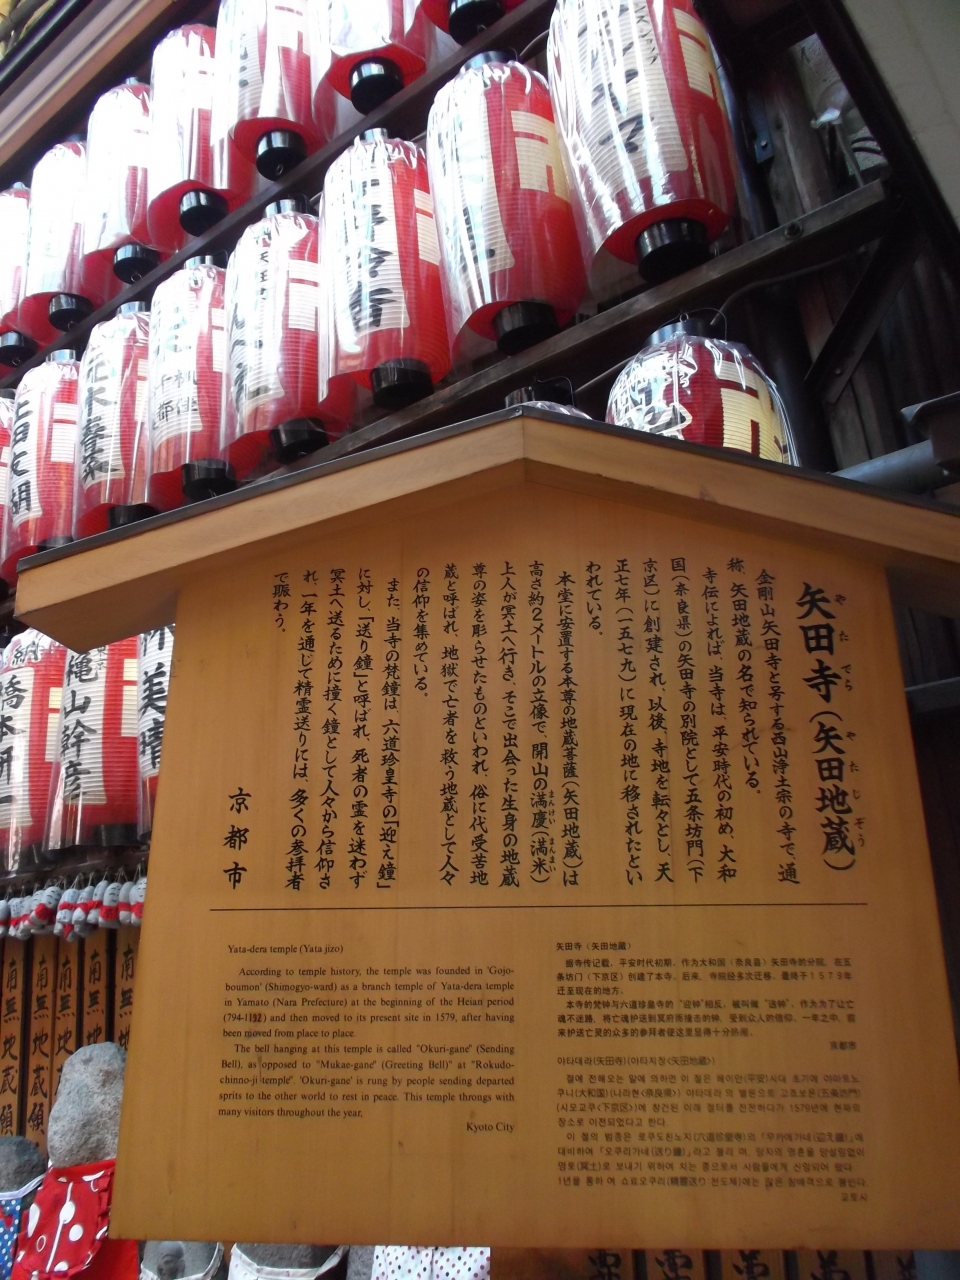 矢田寺（矢田地蔵）
や た でら
や た じ ぞう
金剛山矢田寺と号する西山浄土宗の寺で、通
称、矢田地蔵の名で知られている。
寺伝によれば、当寺は、平安時代の初め、大和
国（奈良県）の矢田寺の別院として五条坊門（下
京区）に創建され、以後、寺地を転々とし、天
正七年（一五七九）に現在の地に移されたとい
われている。
本堂に安置する本尊の地蔵菩薩（矢田地蔵）は
高さ約２メートルの立像で、開山の満慶（満米）
まんけい まんまい
上人が冥土へ行き、そこで出会った生身の地蔵
尊の姿を彫らせたものといわれ、俗に代受苦地
蔵と呼ばれ、地獄で亡者を救う地蔵として人々
の信仰を集めている。
また、当寺の梵鐘は、六道珍皇寺の「迎え鐘」
に対し、「送り鐘」と呼ばれ、死者の霊を迷わず
冥土へ送るために撞く鐘として人々から信仰さ
れ、一年を通じて精霊送りには、多くの参拝者
で賑わう。
京都市
Yata-dera temple (Yata jizo)
According to temple history, the temple was founded in 'Gojo-
boumon' (Shimogyo-ward) as a branch temple of Yata-dera temple
in Yamato (Nara Prefecture) at the beginning of the Heian period
(794-1192) and then moved to its present site in 1579, after having
been moved from place to place.
The bell hanging at this temple is called "Okuri-gane" (Sending
Bell), as opposed to "Mukae-gane" (Greeting Bell)" at "Rokudo-
chinno-ji temple". 'Okuri-gane' is rung by people sending departed
sprits to the other world to rest in peace. This temple throngs with
many visitors throughout the year.
Kyoto City
矢田寺（矢田地藏）
据寺传记载，平安时代初期，作为大和国（奈良县）矢田寺的分院，在五
条坊门（下京区）创建了本寺。后来，寺院经多次迁移，最终于１５７９年
迁至现在的地方。
本寺的梵钟与六道珍皇寺的“迎钟”相反，被叫做“送钟”，作为为了让亡
魂不迷路，将亡魂护送到冥府而撞击的钟，受到众人的信仰。一年之中，前
来护送亡灵的众多的参拜者使这里显得十分热闹。
京都市
야타데라(矢田寺)(야타지장<矢田地蔵>)
절에 전해오는 말에 의하면 이 절은 헤이안(平安)시대 초기에 야마토노
쿠니(大和国)(나라현<奈良県>) 야타데라의 별원으로 고죠보몬(五条坊門)
(시모교쿠<下京区>)에 창건된 이래 절터를 전전하다가 1579년에 현재의
장소로 이전되었다고 한다.
이 절의 범종은 로쿠도친노지(六道珍皇寺)의 「무카에가네(迎え鐘)」에
대비하여 「오쿠리가네(送り鐘)」라고 불리며, 망자의 영혼을 망설임없이
명토(冥土)로 보내기 위하여 치는 종으로서 사람들에게 신앙되어 왔다.
교토시
亀山幹彦
橋本研一
南無地蔵
南無地蔵
南無地蔵
南無地蔵